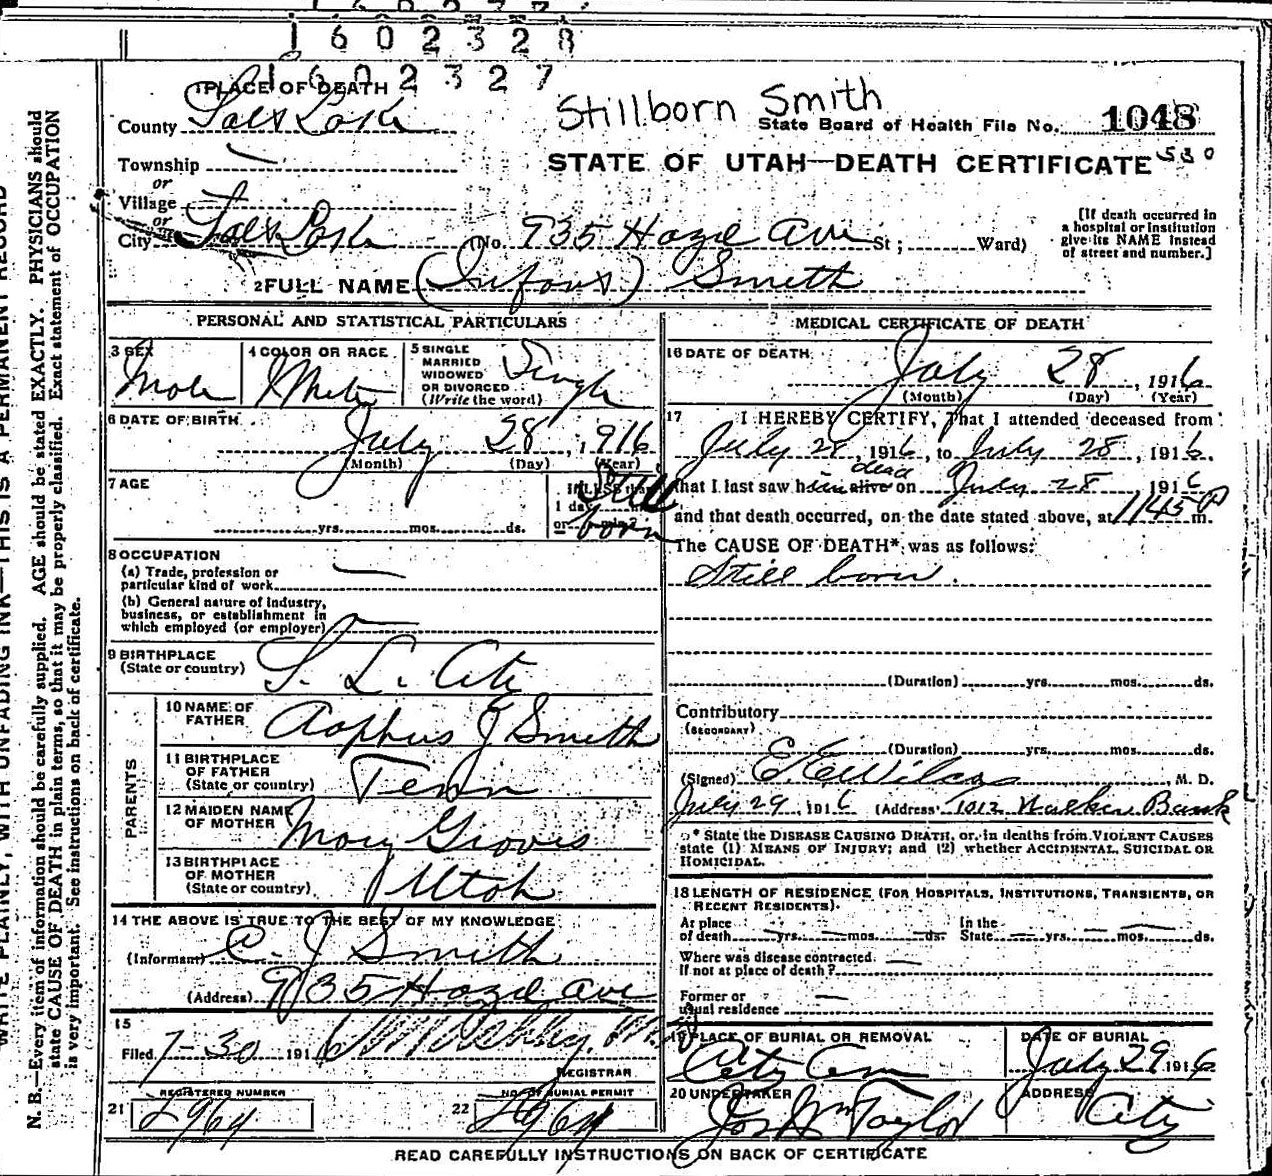 1602328
1602327
1 PLACE OF DEATH
Stillborn Smith
County Salt Lake
State Board of Health File No. 1048
Township
or
Village
or
STATE OF UTAH—DEATH CERTIFICATE 530
City Salt Lake (No. 935 Hazel Ave St; Ward)
[If death occurred in
a hospital or institution
give its NAME instead
of street and number.]
2 FULL NAME (Infant) Smith
PERSONAL AND STATISTICAL PARTICULARS
3 SEX
Male
4 COLOR OR RACE
White
5 SINGLE
MARRIED
WIDOWED
OR DIVORCED
(Write the word)
Single
6 DATE OF BIRTH
July 28, 1916
(Month) (Day) (Year)
7 AGE
yrs. mos. ds.
If LESS than
1 day
or
Still
born
8 OCCUPATION
(a) Trade, profession or
particular kind of work
(b) General nature of industry,
business, or establishment in
which employed (or employer)
9 BIRTHPLACE
(State or country)
S. L. City
PARENTS
10 NAME OF
FATHER
J Smith
11 BIRTHPLACE
OF FATHER
(State or country)
Tenn
12 MAIDEN NAME
OF MOTHER
Mary Groves
13 BIRTHPLACE
OF MOTHER
(State or country)
Utah
14 THE ABOVE IS TRUE TO THE BEST OF MY KNOWLEDGE
(Informant) C. J Smith
(Address) 935 Hazel Ave
15
Filed 7-30 1916
REGISTRAR
REGISTERED NUMBER
21 2964
NO. OF BURIAL PERMIT
22 2964
MEDICAL CERTIFICATE OF DEATH
16 DATE OF DEATH
July 28, 1916
(Month) (Day) (Year)
17 I HEREBY CERTIFY, That I attended deceased from
July 28, 1916, to July 28, 1916.
dead
that I last saw him alive on July 28 1916
and that death occurred, on the date stated above, at 1145 P m.
The CAUSE OF DEATH* was as follows:
Still born.
(Duration) yrs. mos. ds.
Contributory
(SECONDARY)
(Duration) yrs. mos. ds.
(Signed) E. E. Wilcox, M. D.
July 29, 1916 (Address) 1012 Walker Bank
* State the DISEASE CAUSING DEATH, or in deaths from VIOLENT CAUSES
state (1) MEANS OF INJURY; and (2) whether ACCIDENTAL, SUICIDAL OR
HOMICIDAL.
18 LENGTH OF RESIDENCE (FOR HOSPITALS, INSTITUTIONS, TRANSIENTS, OR
RECENT RESIDENTS).
At place
of death yrs. mos. ds.
In the
State yrs. mos. ds.
Where was disease contracted
If not at place of death?
Former or
usual residence
19 PLACE OF BURIAL OR REMOVAL
City Cem
DATE OF BURIAL
July 29 1916
20 UNDERTAKER
Jos Wm Taylor
ADDRESS
City
READ CAREFULLY INSTRUCTIONS ON BACK OF CERTIFICATE
WRITE PLAINLY, WITH UNFADING INK—THIS IS A PERMANENT RECORD
N. B.—Every item of information should be carefully supplied. AGE should be stated EXACTLY. PHYSICIANS should
state CAUSE OF DEATH in plain terms, so that it may be properly classified. Exact statement of OCCUPATION
is very important. See instructions on back of certificate.